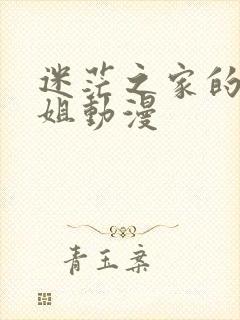 迷茫之家的
姐動漫
青玉案